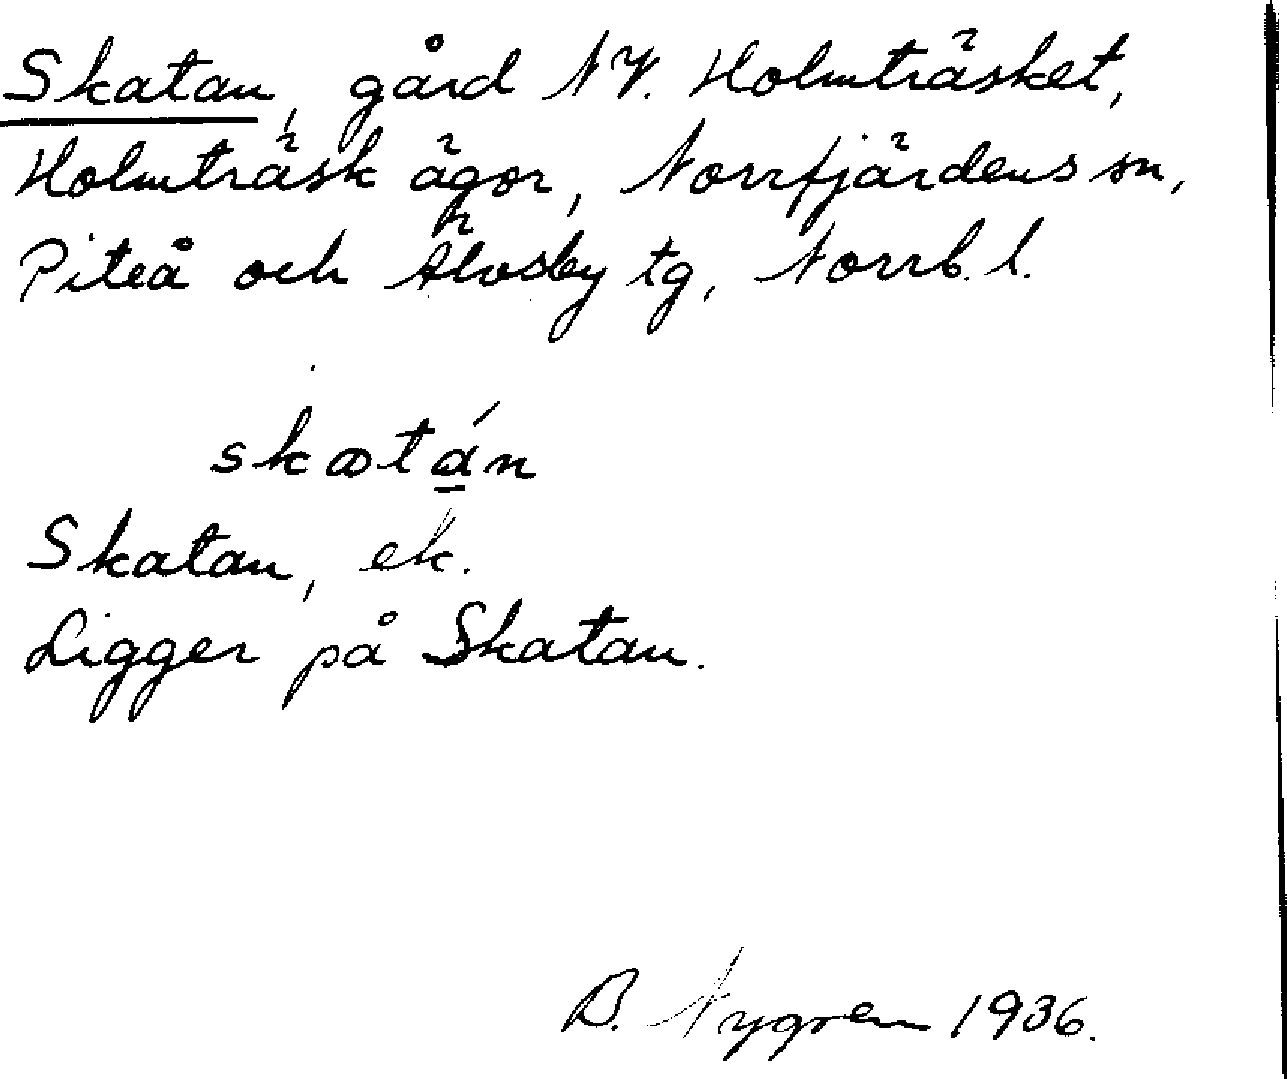 Skatan, gård NV. Holmträsket,
Holmträsk ägor, Norrfjärdens sn,
Piteå och Älvsby tg, Norrb. l.
skatán
Skatan, ek.
Ligger på Skatan.
B. Nygren 1936.